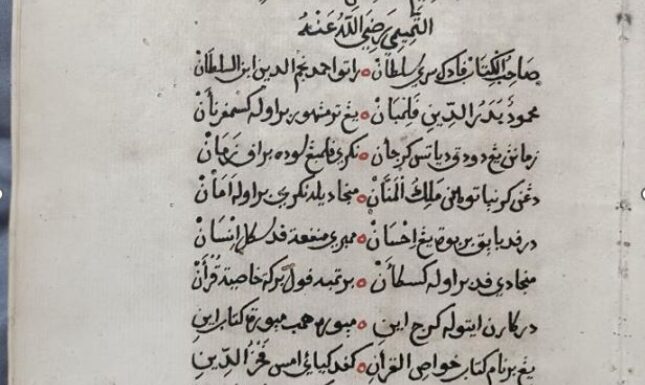 التميمي رضي الله عنه
صاحب الكتاب فادك سري سلطان راتو احمد نجم الدين ابن السلطان
محمود بدر الدين فلمبان يڠ مشهور براوله كسمفرنأن
زمانڽ يڠ دودق دياتس كرجأن نكري فلمبڠ براف زمان
دڠن كرنيا توهن ملك المنان منجاديله نكري براوله امان
درفد باڽق بربوة يڠ احسان ممبري منفعة فد سكل انسان
منجادي براوله برتمبه فول بركة خاصية قرأن
دركارن ايتوله كرج اين مپوره همب مپورة كتاب اين
يڠ برنام كتاب خواص القرآن كفد كياهي امس فخر الدين